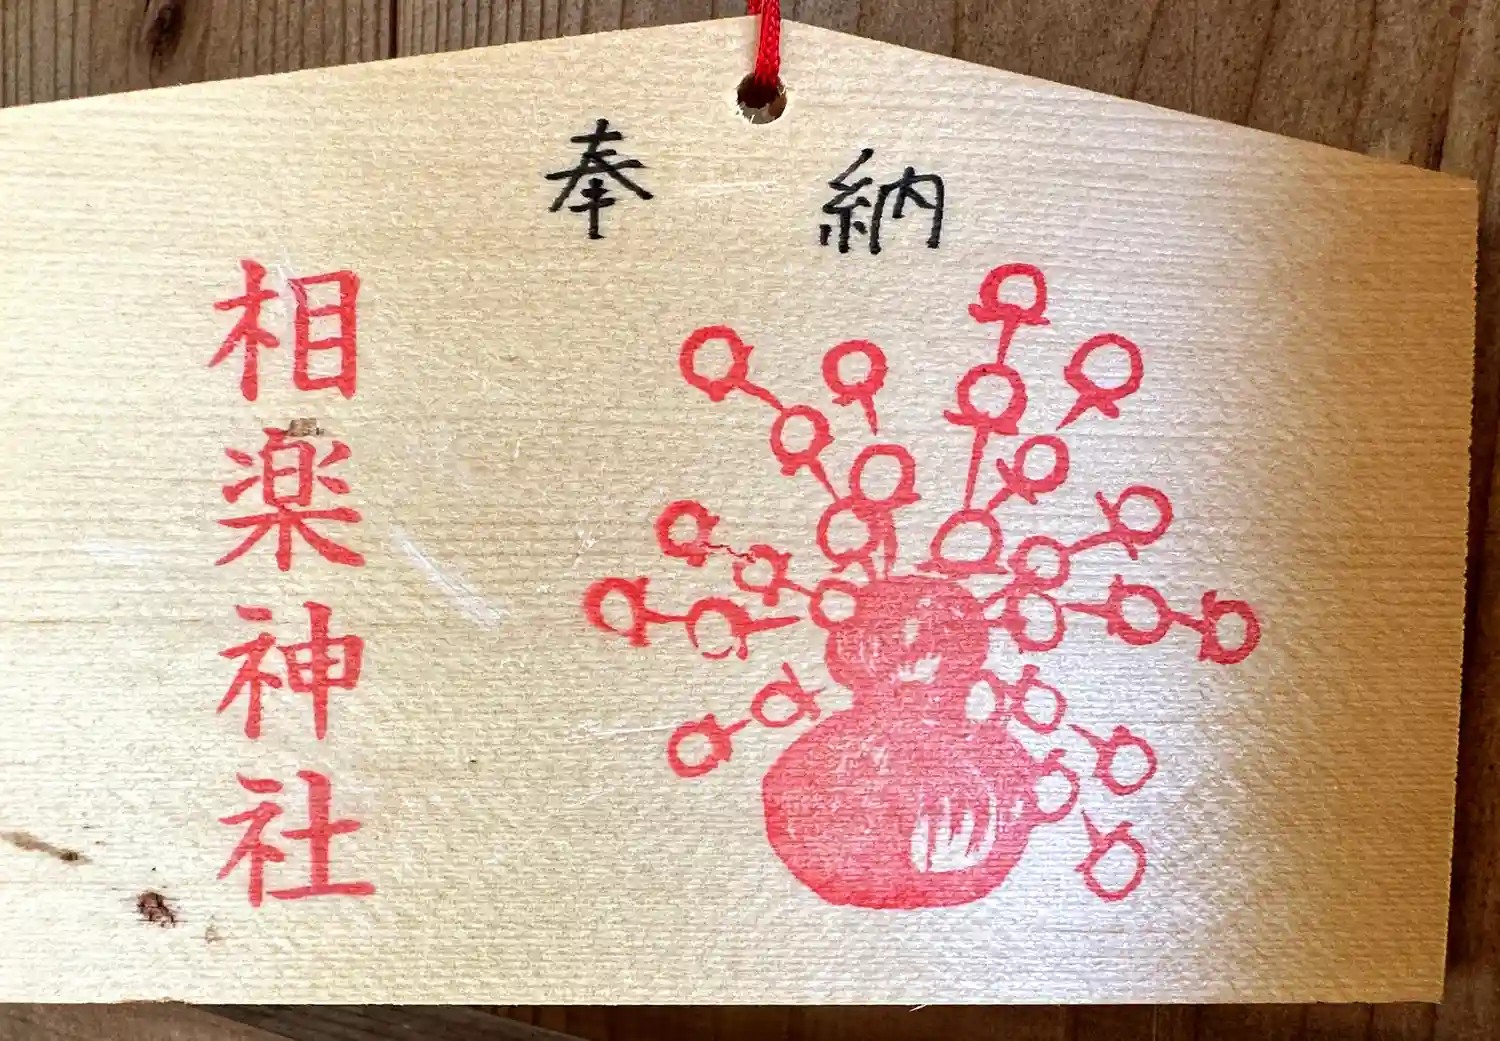 奉納
相楽神社